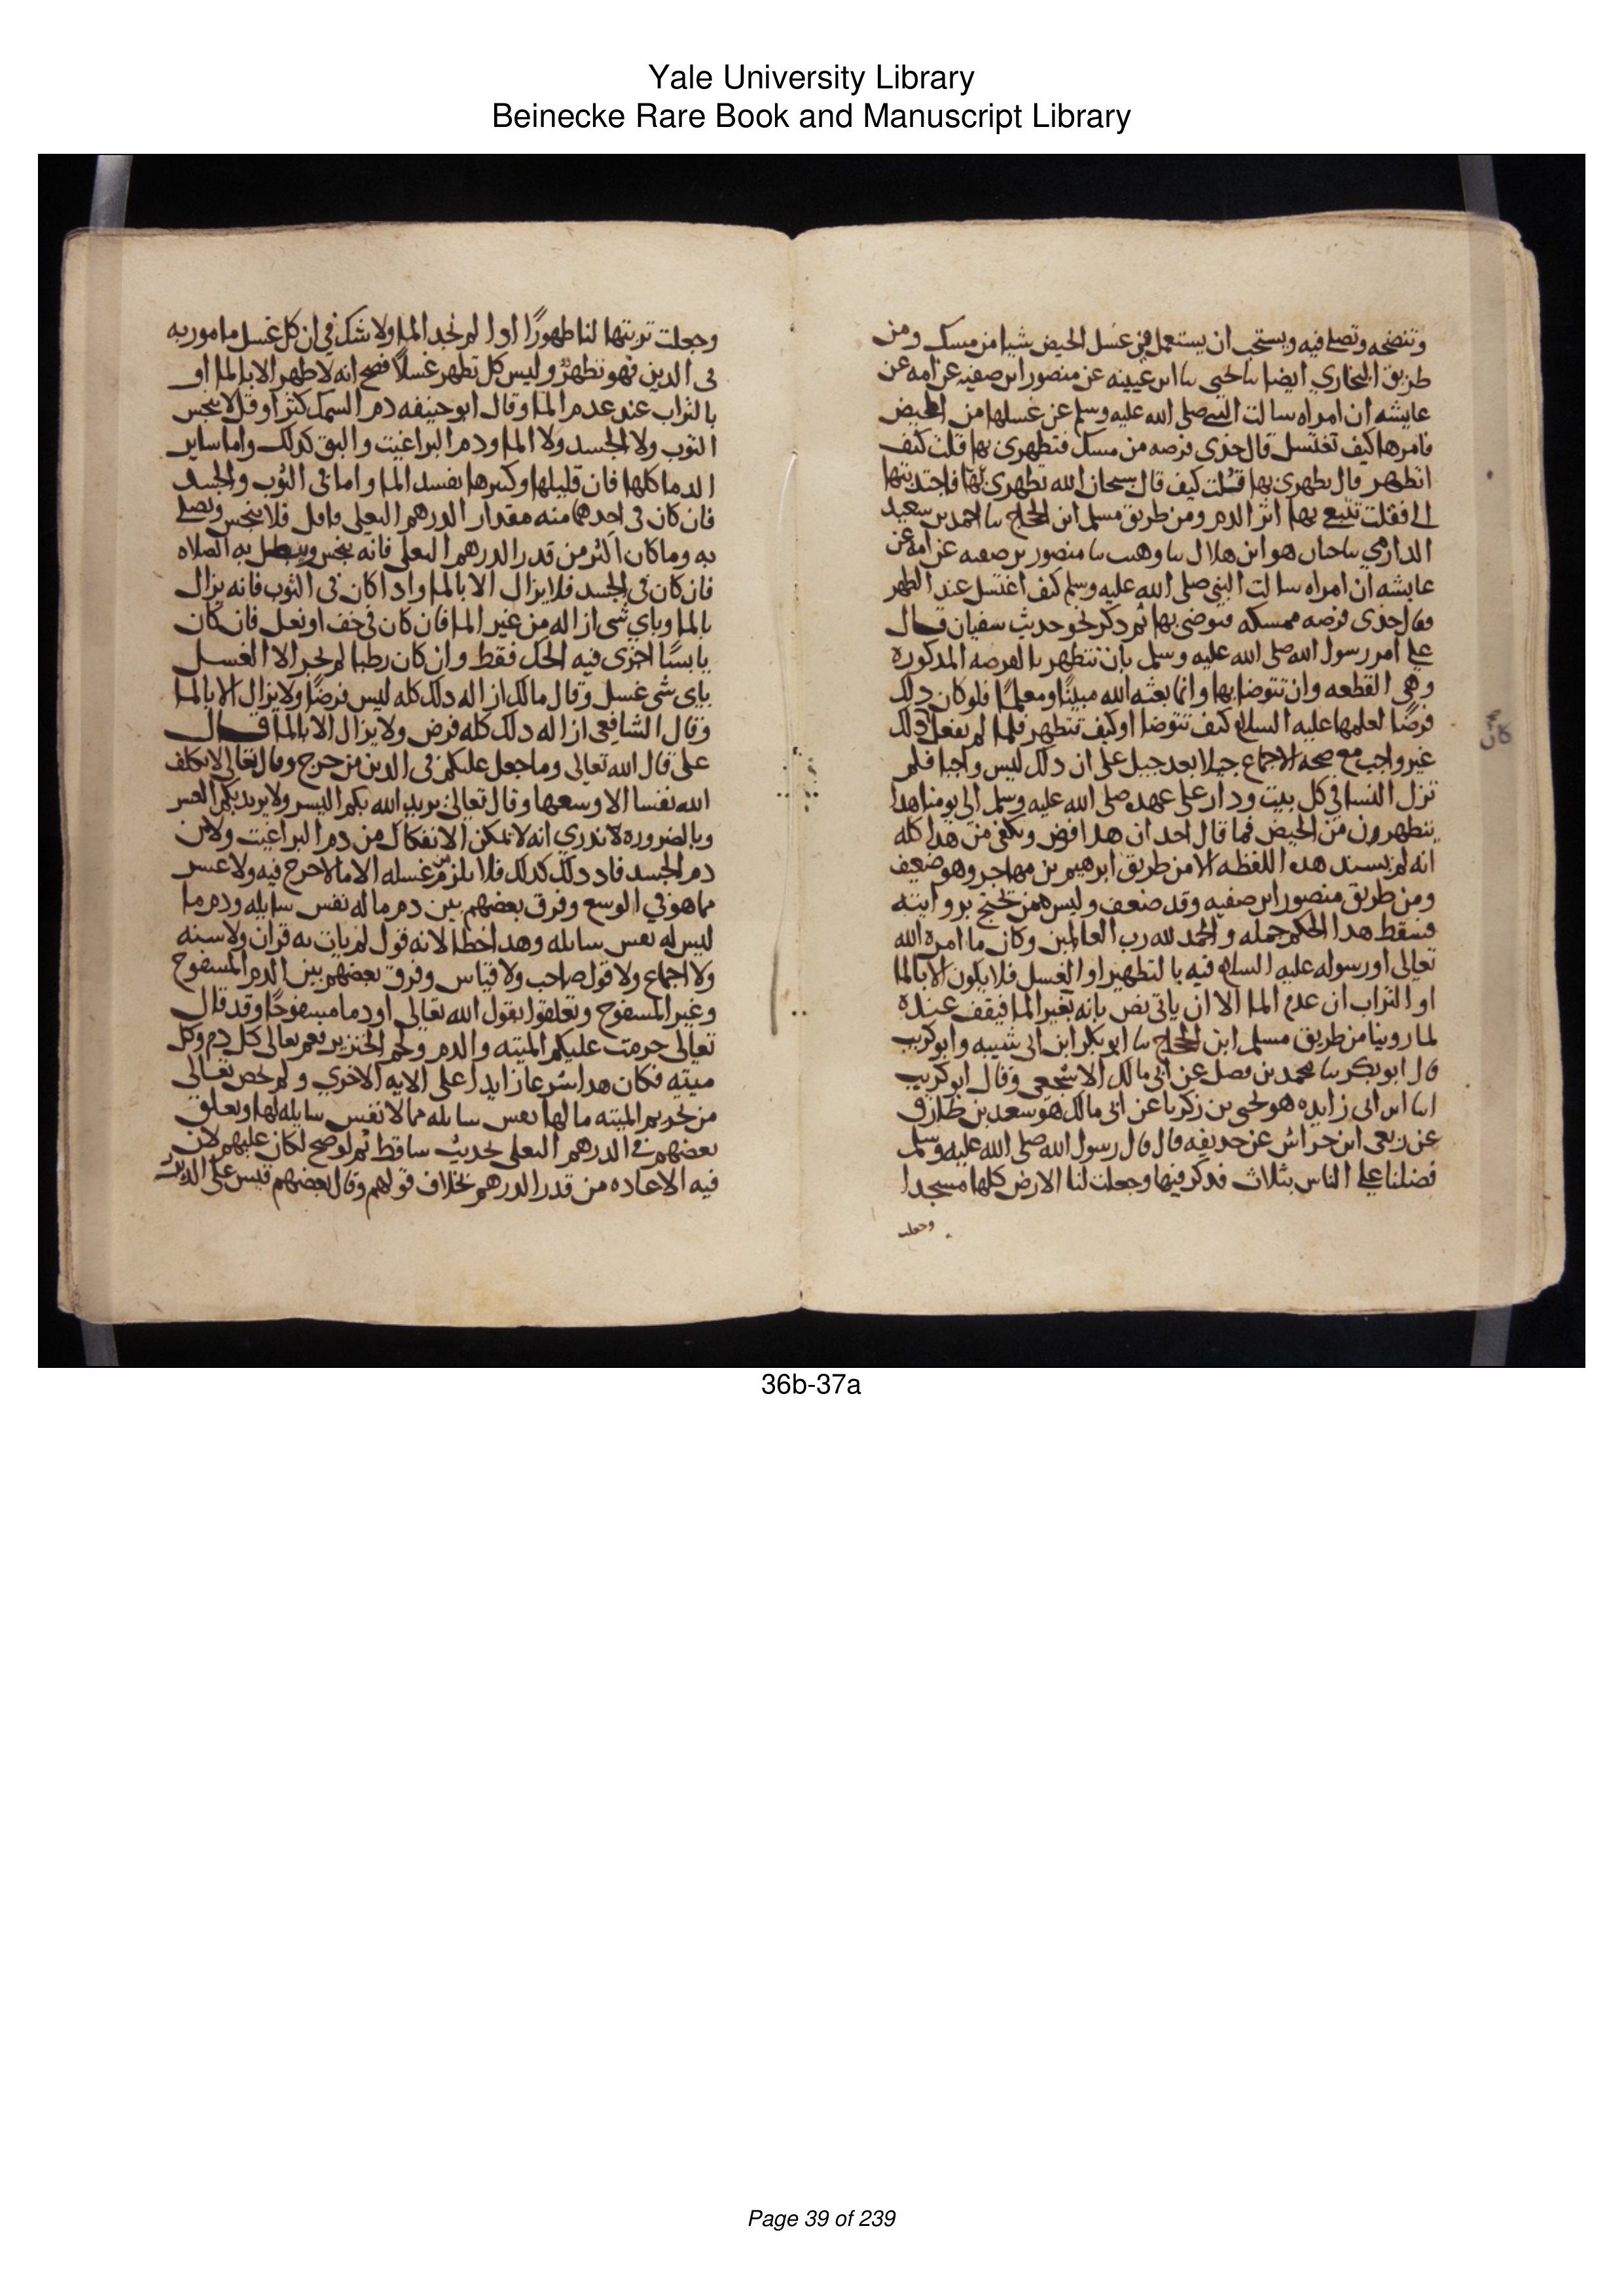 Yale University Library
Beinecke Rare Book and Manuscript Library
وتنضحه وتصلي فيه ويستحب ان يستعمل في غسل الحيض شيا من مسك ومن
طريق البخاري ايضا سا يحيى سا ابن عيينه عن منصور ابن صفيه عن امه عن
عايشه ان امراه سالت النبي صلى الله عليه وسلم عن غسلها من المحيض
فامرها كيف تغتسل قال خذى فرصه من مسك فتطهرى بها قلت كيف
اتطهر قال تطهري بها قلت كيف قال سبحان الله تطهري بها فاجتذبتها
الي فقلت تتبع بها اثر الدم ومن طريق مسلم ابن الحجاج سا احمد بن سعيد
الدارمي سا حبان هو ابن هلال سا وهيب سا منصور بن صفيه عن امه عن
عايشه ان امراه سالت النبي صلى الله عليه وسلم كيف اغتسل عند الطهر
فقال خذى فرصه ممسكه فتوضي بها ثم ذكر نحو حديث سفيان قال
علي امر رسول الله صلى الله عليه وسلم بان تتطهر بالفرصه المذكوره
وهي القطعه وان تتوضا بها وانما بعثه الله مبينًا ومعلمًا فلو كان ذلك
فرضًا لعلمها عليه السلام كيف تتوضا او كيف تتطهر فلما لم يفعل ذلك
كان
غير واجب مع صحه الاجماع جيلا بعد جيل على ان ذلك ليس واجبا فلم
تزل النسا في كل بيت ودار على عهده صلى الله عليه وسلم الى يومنا هذا
يتطهرون من الحيض فما قال احد ان هذا فرض ويكفي من هذا كله
انه لم يسند هذه اللفظه الا من طريق ابرهيم بن مهاجر وهو ضعيف
ومن طريق منصور ابن صفيه وقد ضعف وليس ممن يحتج بروايته
فسقط هذا الحكم جمله والحمد لله رب العالمين وكان ما امره الله
تعالى او رسوله عليه السلام فيه بالتطهير او الغسل فلا يكون الا بالما
او التراب ان عدم الما الا ان ياتي نص بانه بغير الما فيقف عنده
لما روينا من طريق مسلم ابن الحجاج سا ابو بكر ابن ابي شيبه وابو كريب
قال ابو بكر سا محمد بن فضل عن ابي مالك الاشجعي وقال ابو كريب
اسا ابن ابي زايده هو يحيى بن زكريا عن ابي مالك هو سعد بن طارق
عن ربعي ابن حراش عن حذيفه قال قال رسول الله صلى الله عليه وسلم
فضلنا علي الناس بثلاث فذكر فيها وجعلت لنا الارض كلها مسجدا
وجعلت
وجعلت تربتها لنا طهورًا اذا لم نجد الما ولا شك في ان كل غسل مامور به
في الدين فهو تطهرٌ وليس كل تطهر غسلًا فصح انه لا طهر الا بالما او
بالتراب عند عدم الما وقال ابو حنيفه دم السمك كثر او قل لا ينجس
الثوب ولا الجسد ولا الما ودم البراغيث والبق كذلك واما ساير
الدما كلها فان قليلها وكثيرها يفسد الما واما في الثوب والجسد
فان كان في احدهما منه مقدار الدرهم البغلي فاقل فلا ينجس ويصلي
به وما كان اكثر من قدر الدرهم البغلي فانه ينجس ويبطل به الصلاه
فان كان في الجسد فلا يزال الا بالما واذا كان في الثوب فانه يزال
بالما وباي شي ازاله من غير الما فان كان في خف او نعل فان كان
يابسًا اجزى فيه الحك فقط وان كان رطبا لم يجز الا الغسل
باي شي غسل وقال مالك ازاله ذلك كله ليس فرضًا ولا يزال الا بالما
وقال الشافعي ازاله ذلك كله فرض ولا يزال الا بالما قال
علي قال الله تعالى وما جعل عليكم في الدين من حرج وقال تعالى لا يكلف
الله نفسا الا وسعها وقال تعالى يريد الله بكم اليسر ولا يريد بكم العسر
وبالضروره لا ندري انه لا يمكن الانفكاك من دم البراغيث ولا من
دم الجسد فاذ ذلك كذلك فلا يلزم من غسله الا ما لا حرج فيه ولا عسر
مما هو في الوسع وفرق بعضهم بين دم ما له نفس سايله ودم ما
ليس له نفس سايله وهذا خطا لانه قول لم يات به قران ولا سنه
ولا اجماع ولا قول صاحب ولا قياس وفرق بعضهم بين الدم المسفوح
وغير المسفوح وتعلقوا بقول الله تعالى او دما مسفوحًا وقد قال
تعالى حرمت عليكم الميته والدم ولحم الخنزير فعم تعالى كل دم وكل
ميته فكان هذا شرعا زايدا على الايه الاخري ولم يخص تعالى
من تحريم الميته ما لها نفس سايله مما لا نفس سايله لها وتعلق
بعضهم في الدرهم البغلي بحديث ساقط ثم لو صح لكان عليهم لان
فيه الاعاده من قدر الدرهم بخلاف قولهم وقال بعضهم قيس على الدبر
36b-37a
Page 39 of 239